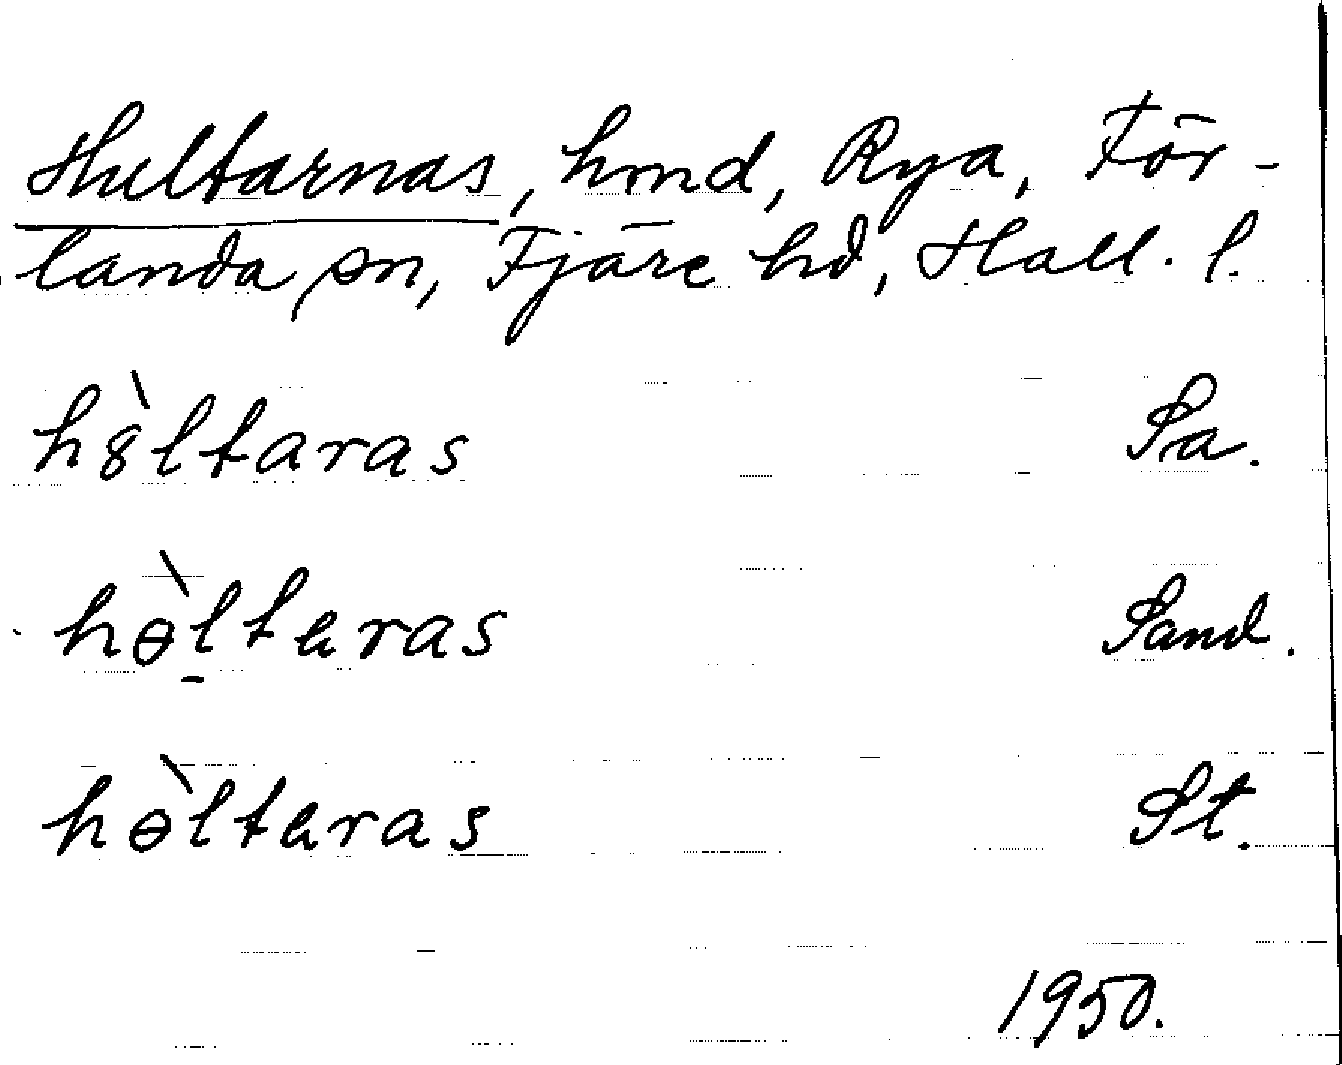 Hultarnas, hmd, Rya, För-
landa sn, Fjäre hd, Hall. l.
hȣ̀ltaras Sa.
hɵ̀l̠teras Sand.
hɵ̀lteras St.
1950.